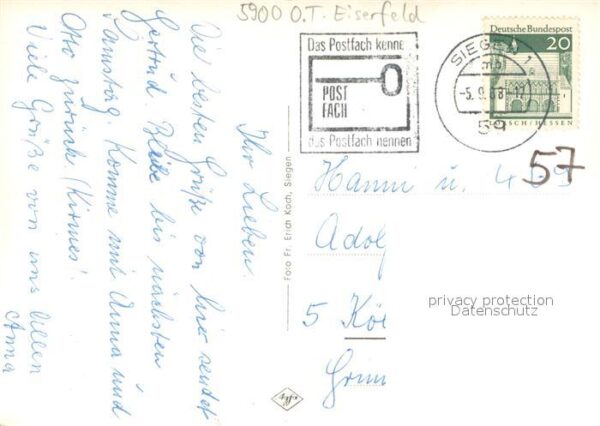 5900 O.T. Eiserfeld
Das Postfach kenne
POST
FACH
das Postfach nennen
SIEGEN 1
mb
-5.9.68-17
59
Deutsche Bundespost
20
LORSCH/HESSEN
57
Ihr Lieben.
Die besten Grüße von hier sendet
Gertrud. Bleibe bis nächsten
Samstag. Komme mit Anna und
Otto zurück (Kirmes!
Viele Grüße von uns Allen
Anna
Foto Fr. Erich Koch, Siegen
Hanni u.
Adolf
5 Kö
Grim
privacy protection
Datenschutz